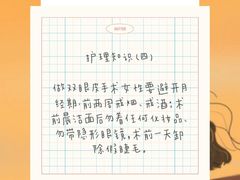 护理知识(四)
做双眼皮手术女性要避开月
经期.前两周戒烟、戒酒;术
前晨洁面后勿着任何化妆品、
勿带隐形眼镜,术前一天卸
除假睫毛。